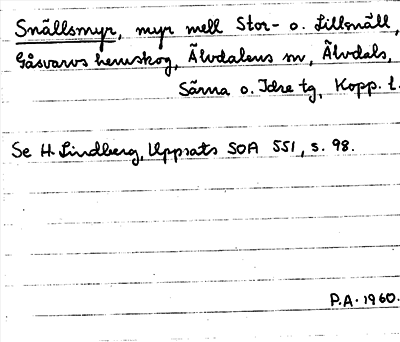 Snällsmyr, myr mell Stor- o. Lillsnäll,
Gåsvarvs hemskog, Älvdalens sn, Älvdals,
Särna o. Idre tg, Kopp. l.
Se H. Lindberg, Uppsats SOA 551, s. 98.
P.A. 1960.